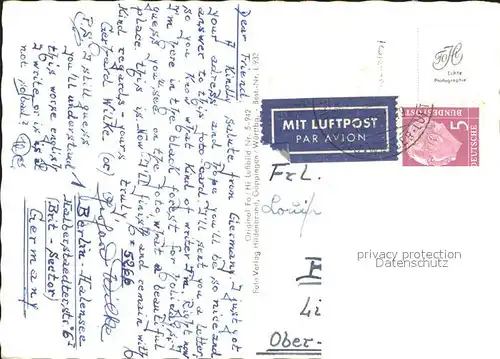 Dear Friend,
A kindly salute from Germany. I just got
your adress and hope you'll be so nice and
answer to this fotocard I'll sent you a letter
so you know what kind of writer I'm. Right now
I'm here in the black forest for holidays. I
guess you see on the foto, what a beautiful
place this is. Now I'll finish and remain with
kind regards yours truly
Gerhard Wilke
P.S. I still guess
you'll understand
this worse english
I write or is it
not global?
Berlin-Halensee
Halberstaedterstr. 6
(Brit-Sector)
Germany
Foto-Verlag Hildenbrand, Göppingen-Württbg.
MIT LUFTPOST
PAR AVION
Echte
Photographie
5
DEUTSCHE
BUNDESPOST
Frl.
Li
Ober-
privacy protection